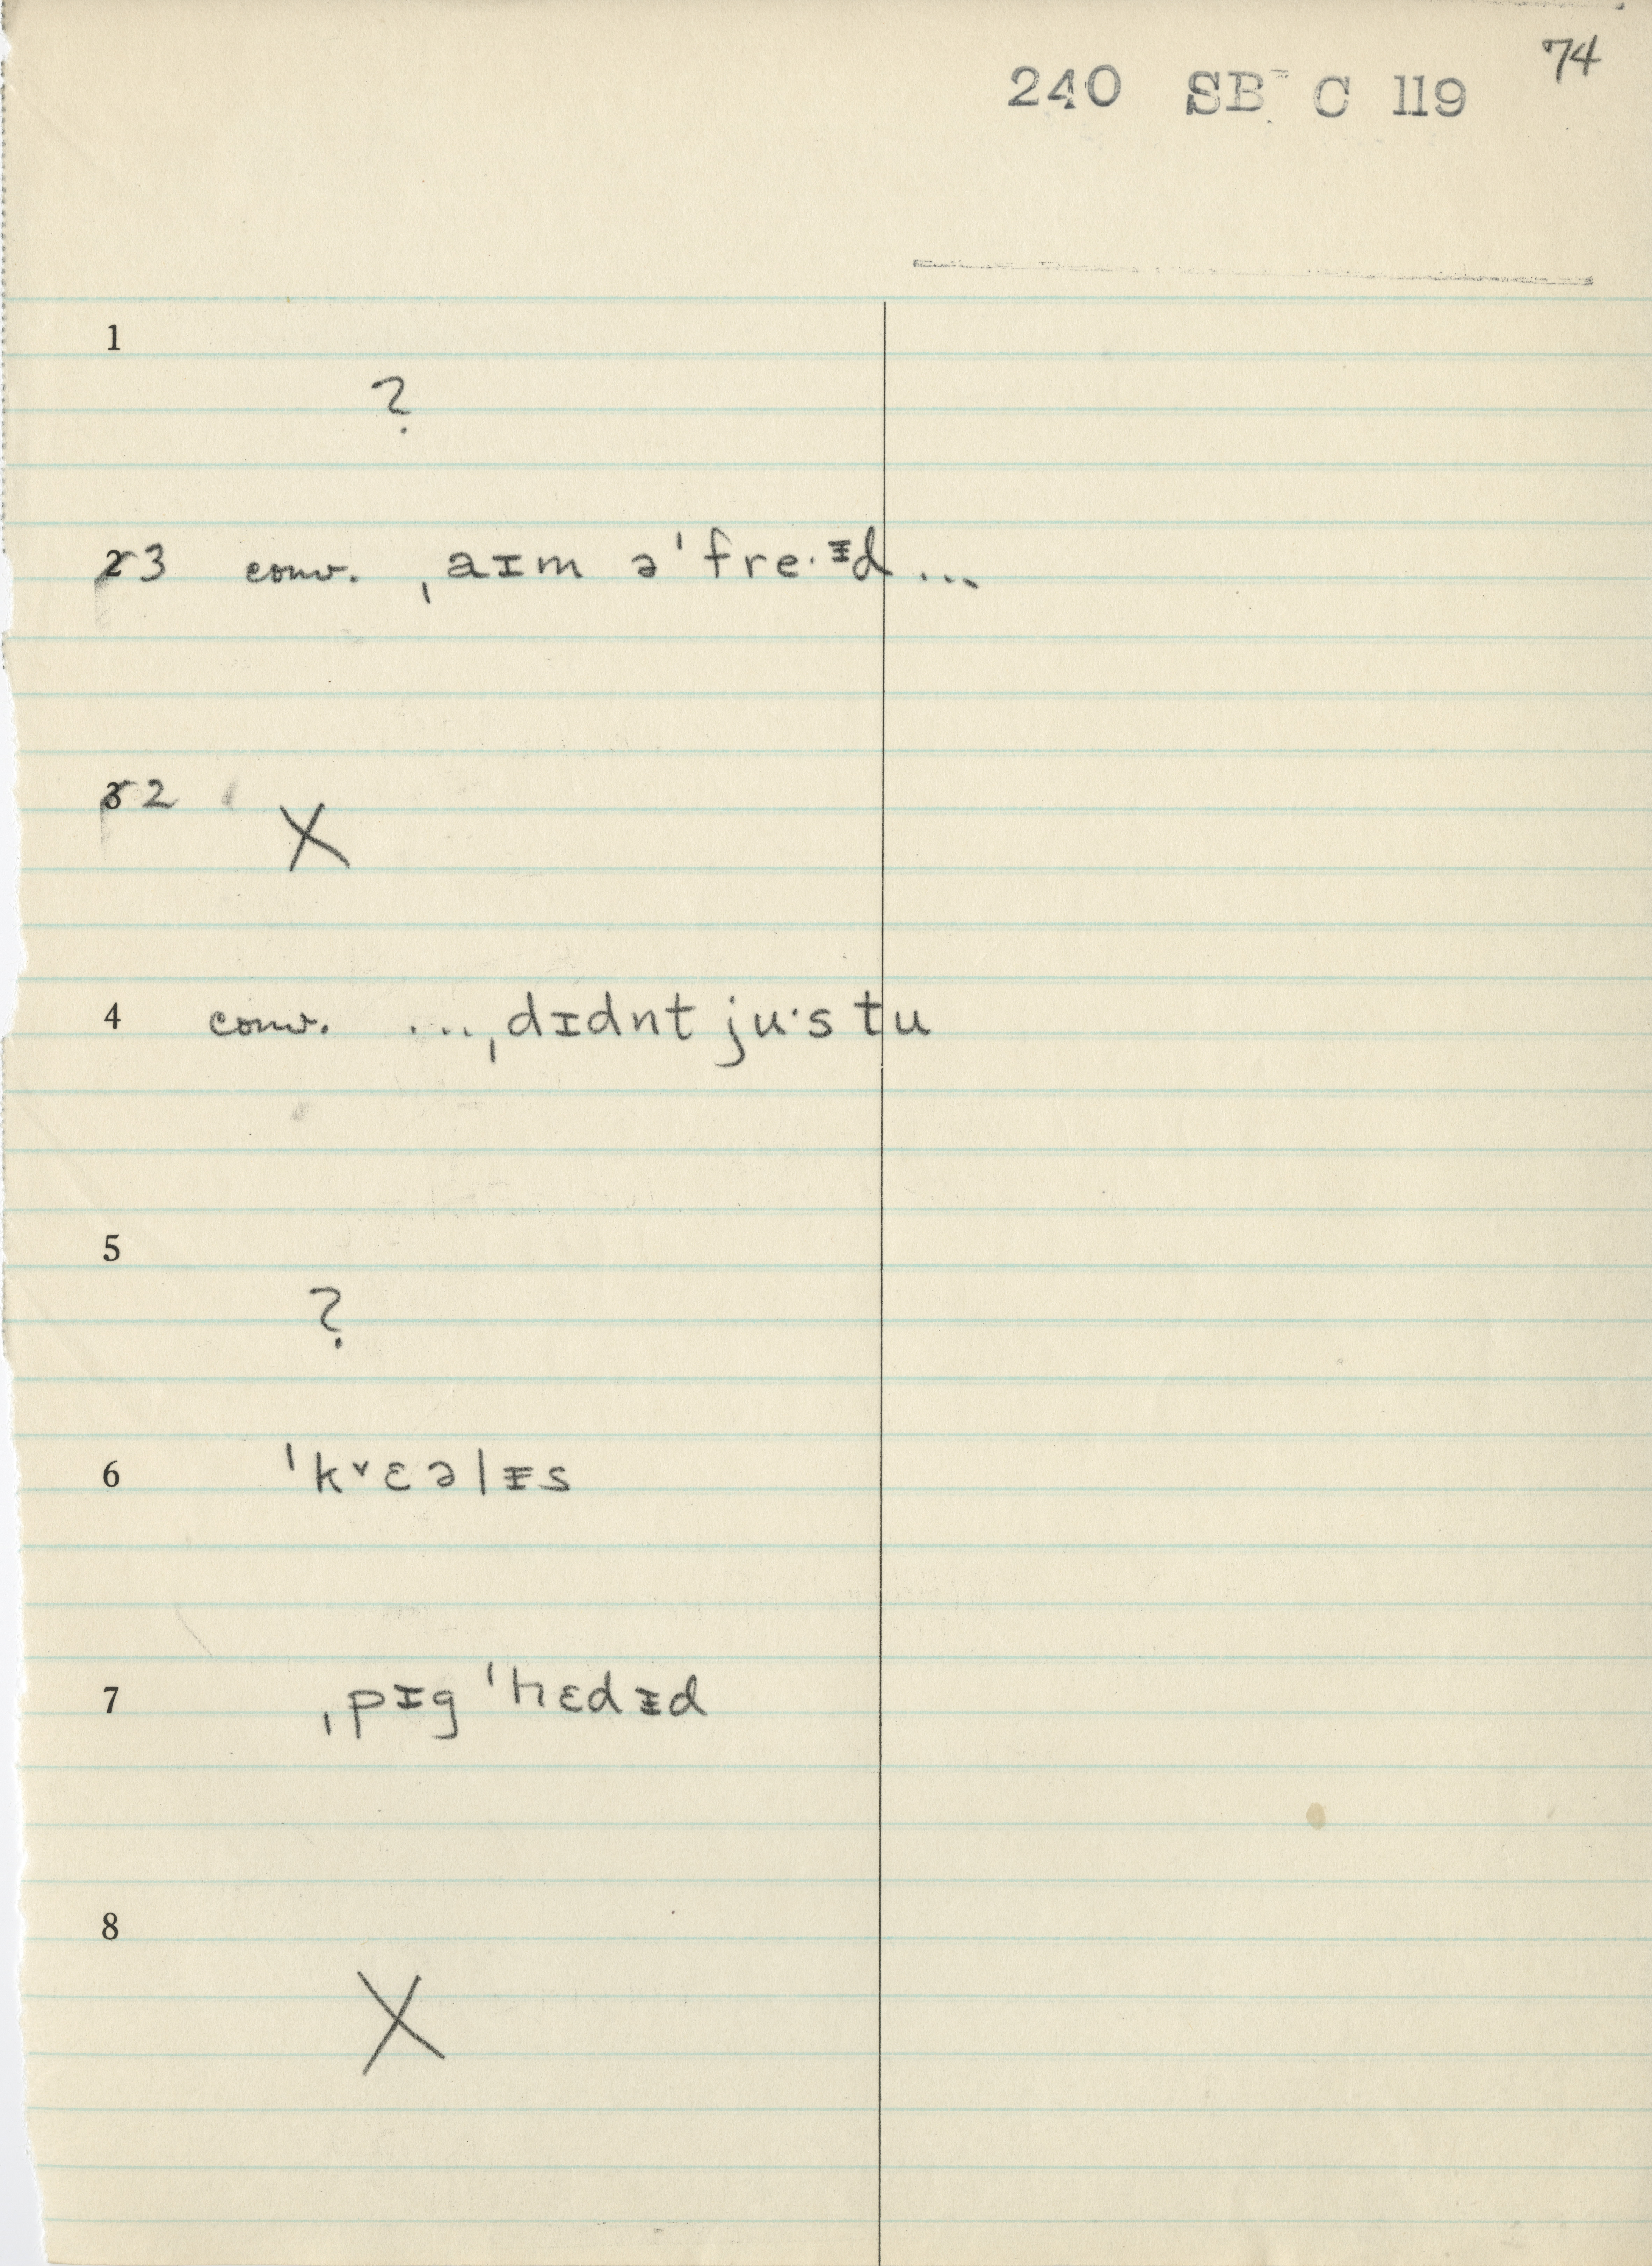 74
240 SB C 119
1
?
2 3 conv. ˌaɪm əˈfre·ᵻd ...
3 2
X
4 conv. ... ˌdɪdnt ju·s tu
5
?
6 ˈk˅ɛəlᵻs
7 ˌpɪg ˈhɛdᵻd
8
X